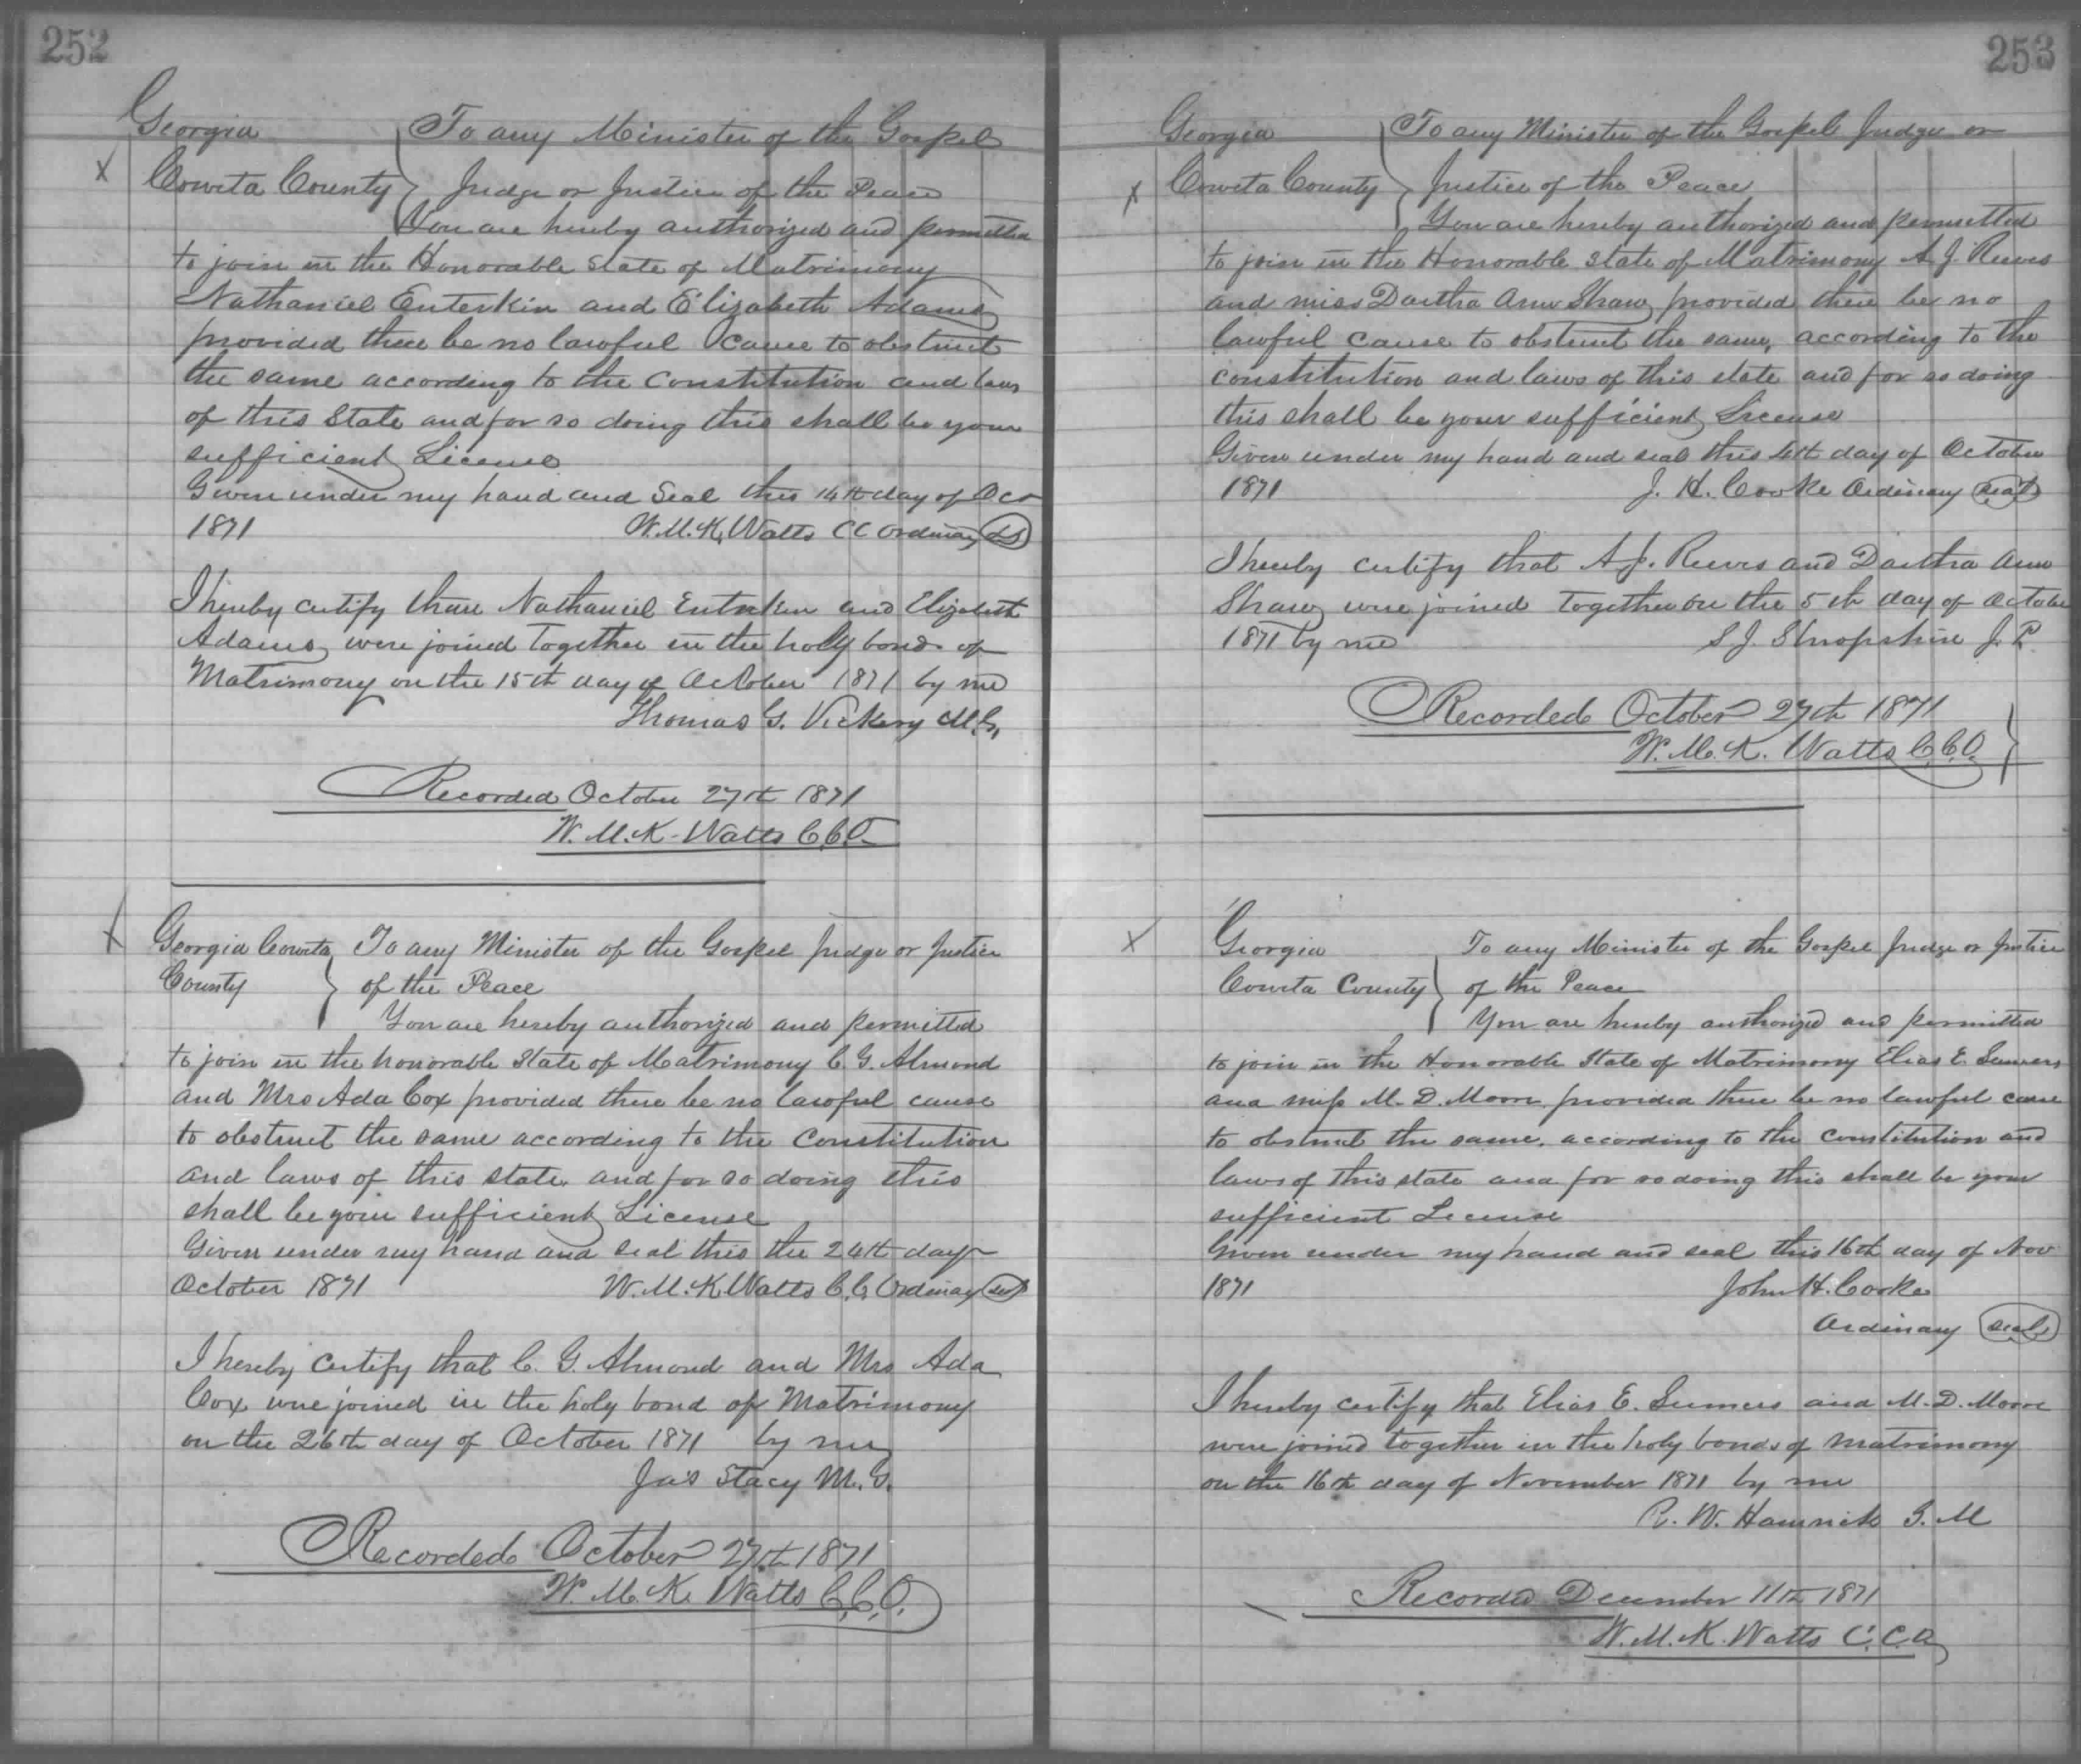 252
Georgia To any Minister of the Gospel
x Coweta County Judge or Justice of the Peace
You are hereby authorized and permitted
to join in the Honorable State of Matrimony
Nathaniel Enterkin and Elizabeth Adams
provided there be no lawful cause to obstruct
the same according to the Constitution and laws
of this State and for so doing this shall be your
sufficient License
Given under my hand and Seal this 14th day of Oct
1871 W.M.K. Watts CC Ordinary LS
I hereby certify that Nathaniel Enterkin and Elizabeth
Adams were joined together in the holy bonds of
Matrimony on the 15th day of October 1871 by me
Thomas G. Vickery M.G.
Recorded October 27th 1871
W. M. K. Watts C.C.O.
x Georgia Coweta To any Minister of the Gospel Judge or Justice
County of the Peace
You are hereby authorized and permitted
to join in the honorable State of Matrimony C. G. Almond
and Mrs Ada Cox provided there be no lawful cause
to obstruct the same according to the Constitution
and laws of this state and for so doing this
shall be your sufficient License
Given under my hand and seal this the 24th day
October 1871 W. M. K. Watts C. C. Ordinary
I hereby certify that C. G. Almond and Mrs Ada
Cox were joined in the holy bond of Matrimony
on the 26th day of October 1871 by me
Jas Stacy M. G.
Recorded October 27th 1871
W. M. K. Watts C.C.O.
253
Georgia To any Minister of the Gospel Judge or
x Coweta County Justice of the Peace
You are hereby authorized and permitted
to join in the Honorable State of Matrimony A. J. Reeves
and miss Dartha Ann Shaw provided there be no
lawful cause to obstruct the same, according to the
constitution and laws of this state and for so doing
this shall be your sufficient License
Given under my hand and seal this 4th day of October
1871 J. H. Cooke Ordinary seal
I hereby certify that A. J. Reeves and Dartha Ann
Shaw were joined together on the 5th day of October
1871 by me S. J. Shropshire J. P.
Recorded October 27th 1871
W. M. K. Watts C.C.O.
x Georgia To any Minister of the Gospel Judge or Justice
Coweta County of the Peace
You are hereby authorized and permitted
to join in the Honorable State of Matrimony Elias E. Summers
and miss M. D. Moore provided there be no lawful cause
to obstruct the same, according to the constitution and
laws of this state and for so doing this shall be your
sufficient License
Given under my hand and seal this 16th day of Nov
1871 John H. Cooke
Ordinary seal
I hereby certify that Elias E. Summers and M. D. Moore
were joined together in the holy bonds of matrimony
on the 16th day of November 1871 by me
R. W. Hamrick G. M
Recorded December 11th 1871
W. M. K. Watts C.C.O